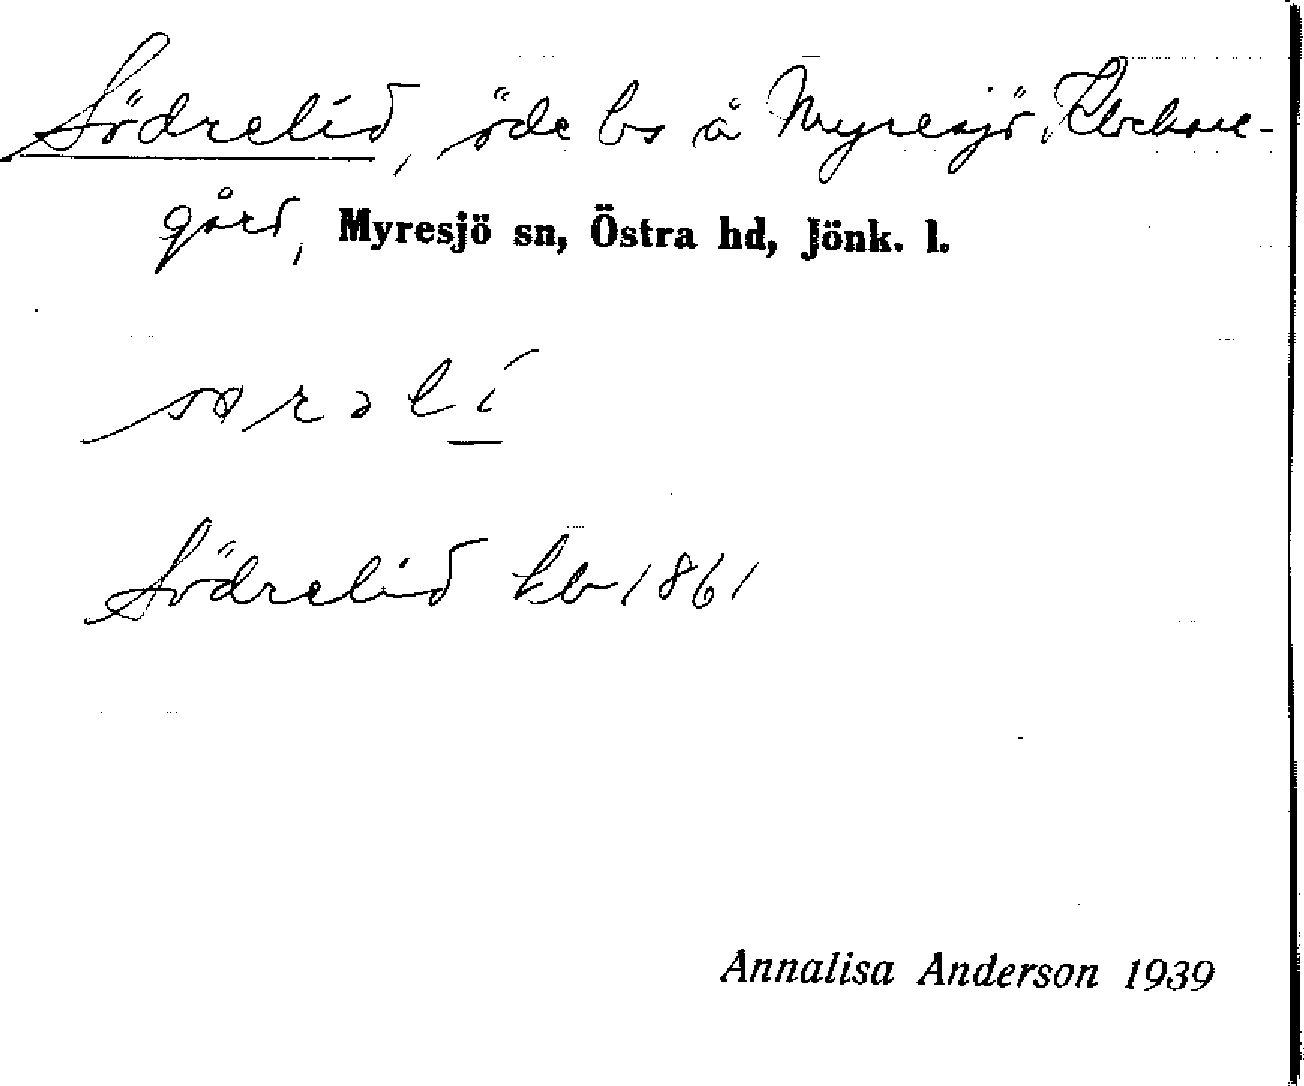 Södrelid, öde bs å Myresjö, Klockare-
gård, Myresjö sn, Östra hd, Jönk. l.
Södrelid hb 1861
Annalisa Anderson 1939